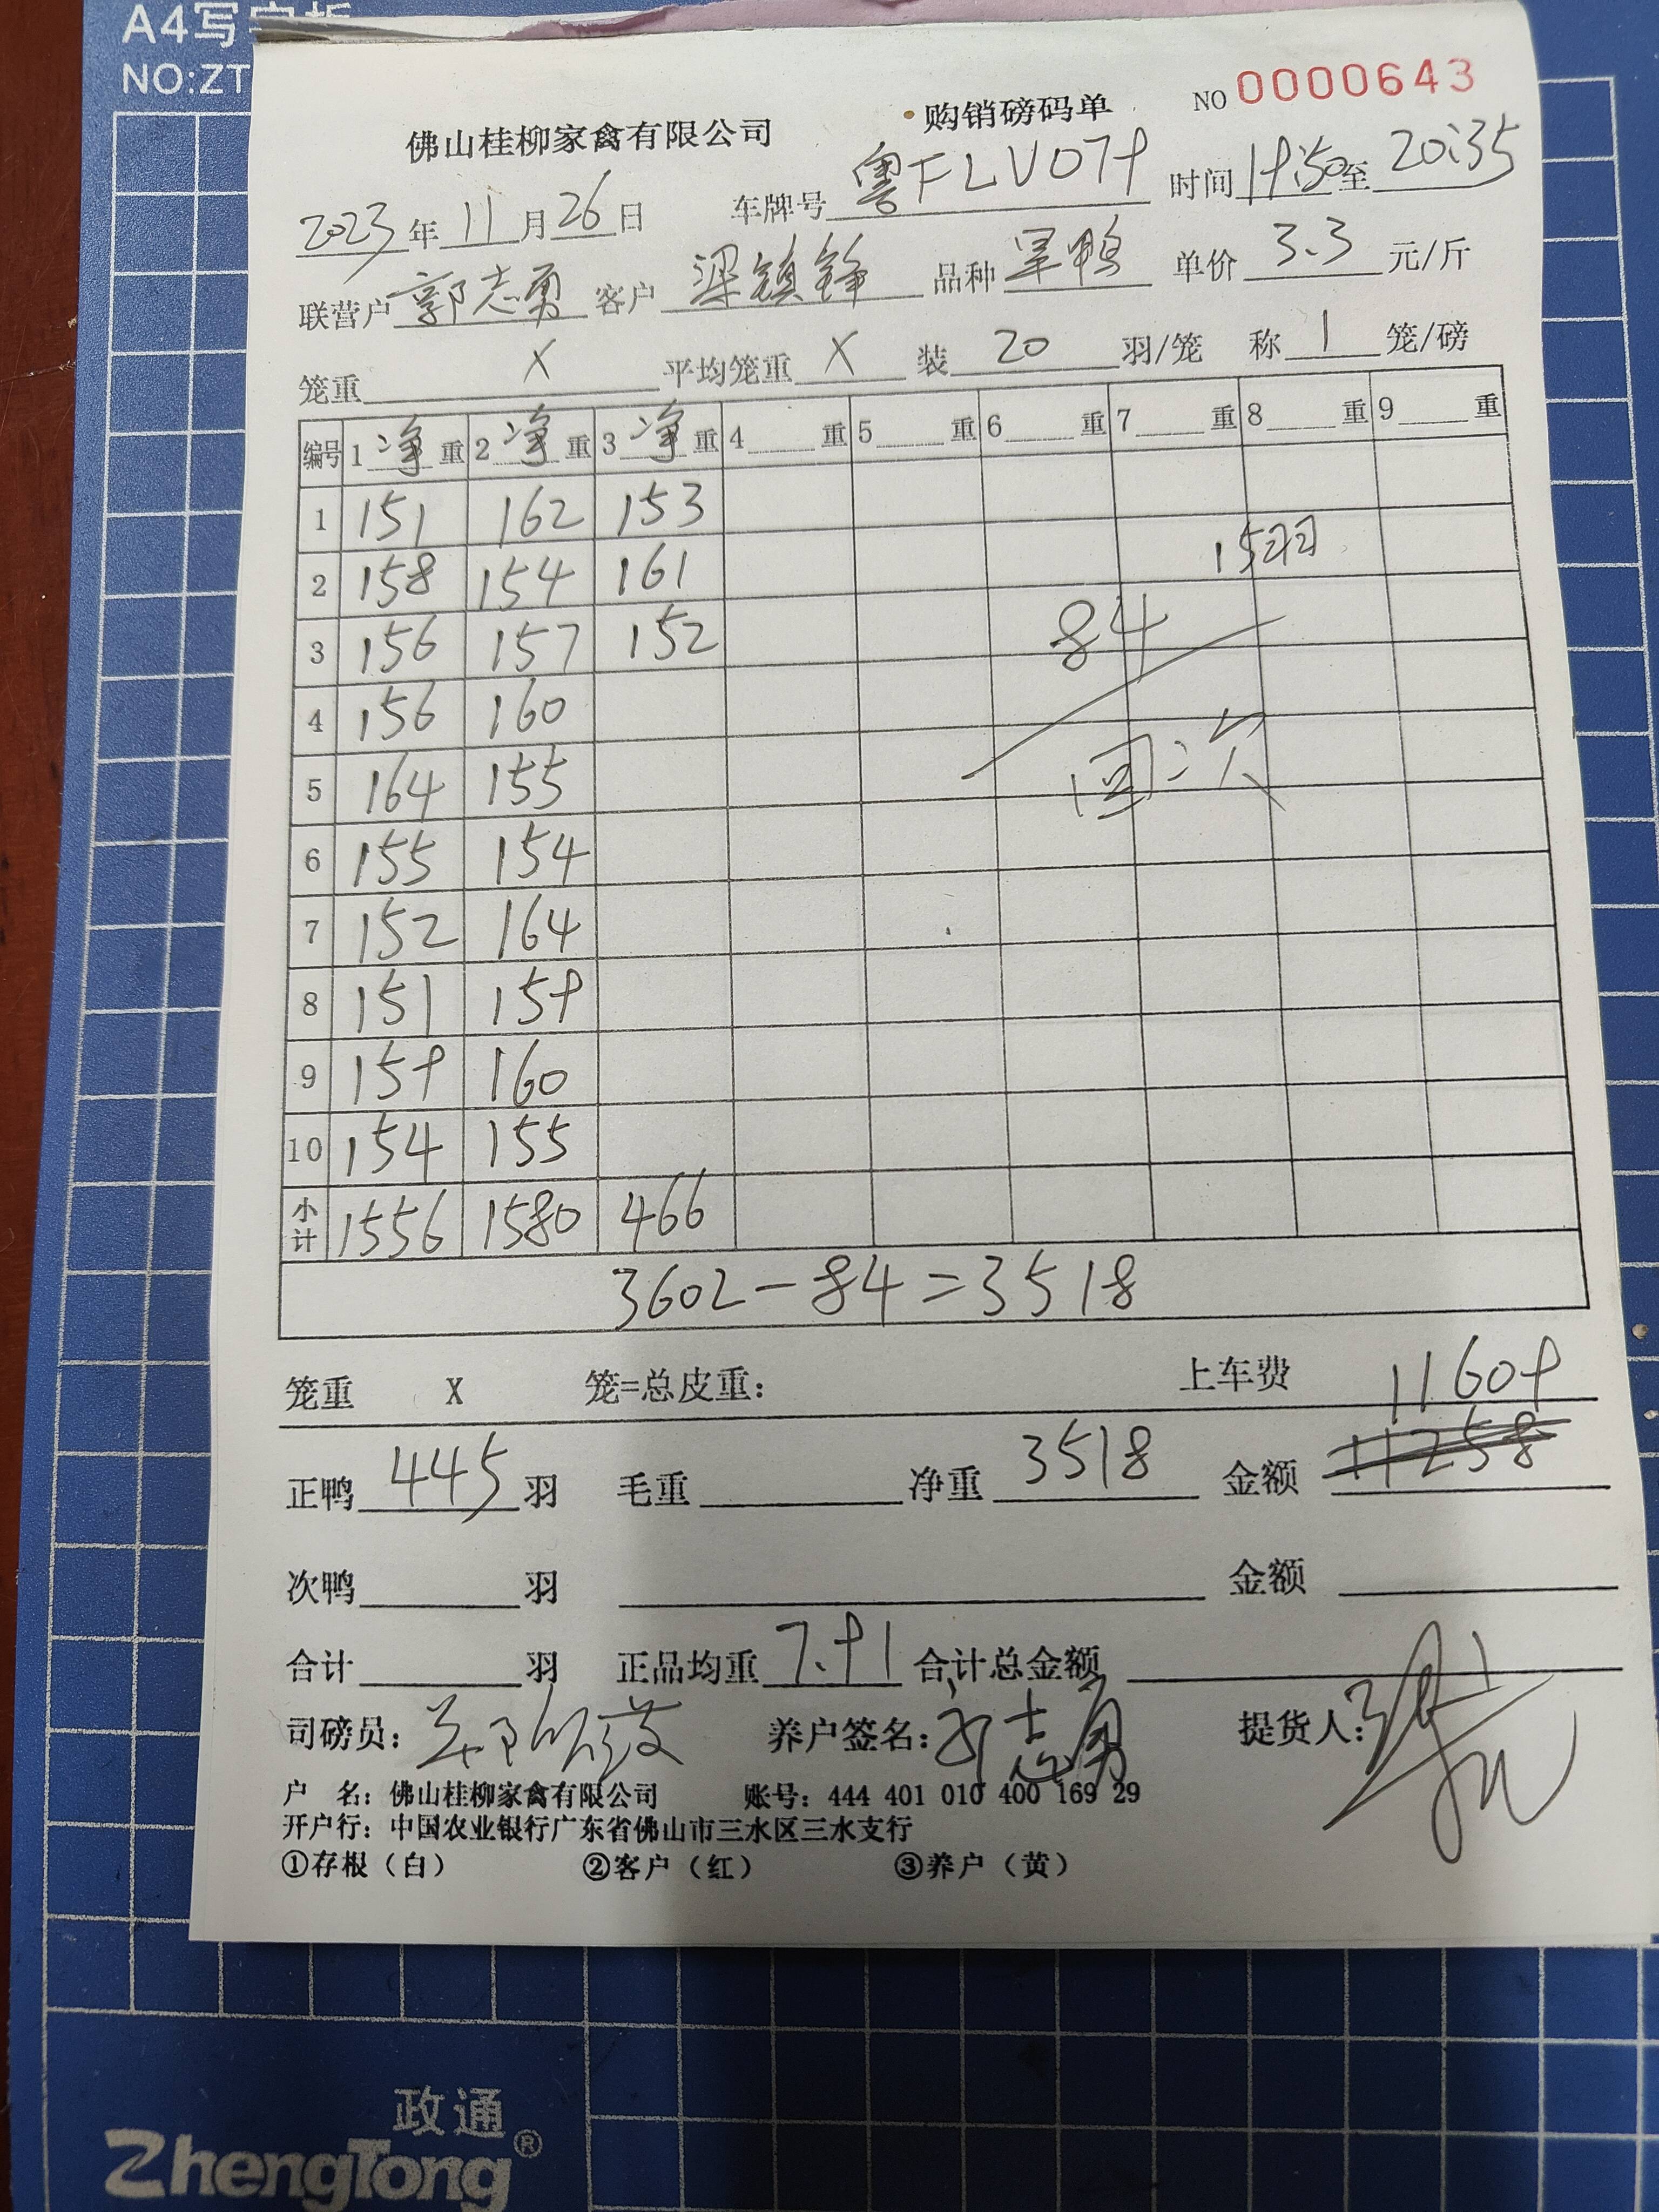 A4写字板
NO:ZT
佛山桂柳家禽有限公司 购销磅码单 NO 0000643
2023年11月26日 车牌号 粤FLV079 时间 19:50至 20:35
联营户 郭志勇 客户 梁镇锋 品种 旱鸭 单价 3.3 元/斤
笼重 X 平均笼重 X 装 20 羽/笼 称 1 笼/磅
编号 1净重 2净重 3净重 4 重 5 重 6 重 7 重 8 重 9 重
1 151 162 153
15羽
2 158 154 161
84
3 156 157 152
4 156 160
回次
5 164 155
6 155 154
7 152 164
8 151 159
9 159 160
10 154 155
小计 1556 1580 466
3602-84=3518
笼重 X 笼=总皮重: 上车费 11609
正鸭 445 羽 毛重 净重 3518 金额 11258
次鸭 羽 金额
合计 羽 正品均重 7.91 合计总金额
司磅员: 养户签名: 郭志勇 提货人:
户 名: 佛山桂柳家禽有限公司 账号: 444 401 010 400 169 29
开户行: 中国农业银行广东省佛山市三水区三水支行
①存根(白) ②客户(红) ③养户(黄)
政通
ZhengTong®